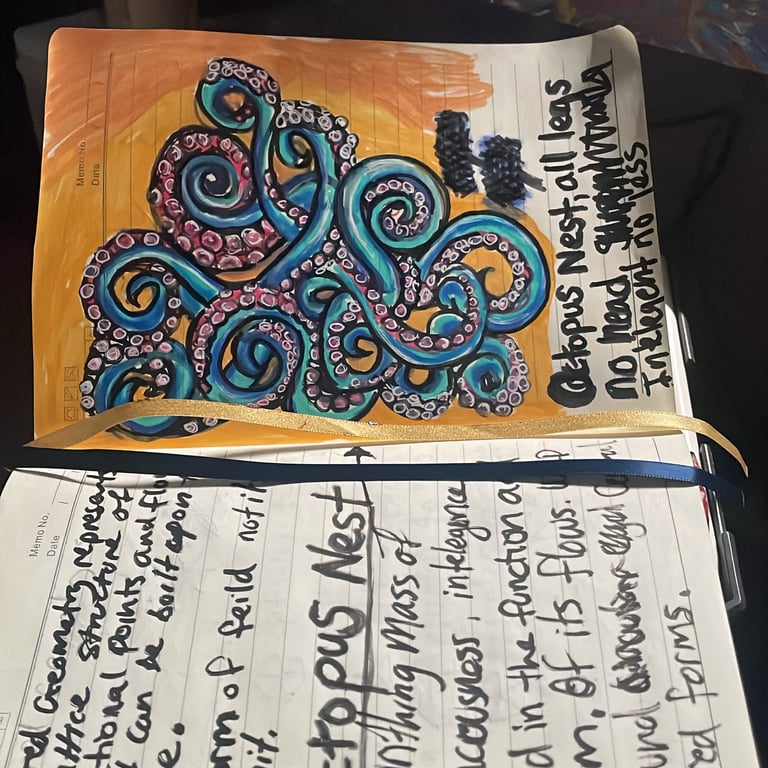 Memo No.
Date
Octopus Nest, all legs
no head,
Inteligent no
Memo No.
Date
red Geometry represent
attice structure of
tional points and flo
can be built upon
e.
rm of feild
it.
topus Nest
nthing Mass of
cousness,
d in the function a
m. Of its flows.
und
red forms.